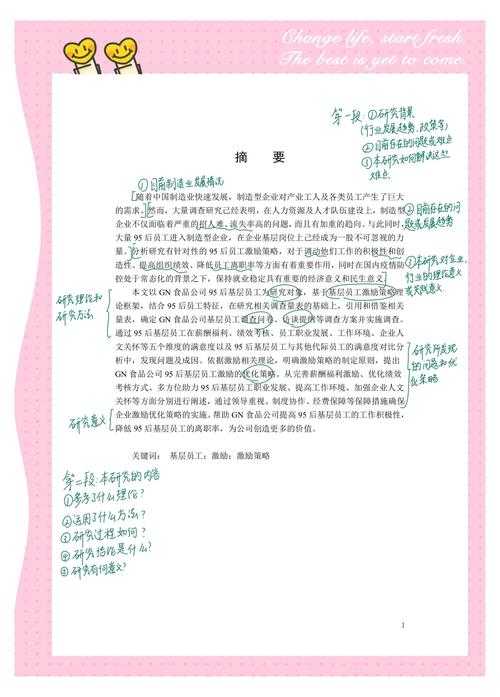 Change life, start fresh
The best is yet to come
第一段:①研究背景
(行业发展趋势、政策等)
②目前存在的问题或难点
①本研究如何解决这些
难点
摘 要
①目前制造业发展情况
[随着中国制造业快速发展，制造型企业对产业工人及各类员工产生了巨大
的需求。然而，大量调查研究已经表明，在人力资源及人才队伍建设上，制造型
企业不仅面临着严重的招人难、流失率高的问题，而且有加重的趋向。与此同时，
大量 95 后员工进入制造型企业，在企业基层岗位上已经成为一股不可忽视的力
量。分析研究有针对性的 95 后员工激励策略，对于调动他们工作的积极性和创
造性、提高组织绩效、降低员工离职率等方面有着重要作用，同时在国内疫情防
控处于常态化的背景之下，保持就业稳定具有重要的经济意义和民生意义]
②目前存在的问
题或发展趋势
①本研究对企业、
行业的理论意义
或实践意义
本文以 GN 食品公司 95 后基层员工为研究对象，基于基层员工激励策略理
论框架，结合 95 后员工特征，在研究相关调查量表的基础上，引用和借鉴相关
量表，确定 GN 食品公司基层员工调查问卷、访谈提纲等调查方案并实施调查。
通过 95 后基层员工在薪酬福利、绩效考核、员工职业发展、工作环境、企业人
文关怀等五个维度的满意度以及 95 后基层员工与其他代际员工的满意度对比分
析中，发现问题及成因。依据激励相关理论，明确激励策略的制定原则，提出
GN 食品公司 95 后基层员工激励的优化策略，从完善薪酬福利激励、优化绩效
考核方式、多方位助力 95 后基层员工职业发展、提高工作环境、加强企业人文
关怀等方面分别进行阐述，通过领导重视、制度协作、经费保障等保障措施确保
企业激励优化策略的实施。帮助 GN 食品公司提高 95 后基层员工的工作积极性，
降低 95 后员工的离职率，为公司创造更多的价值。
研究理论和
研究方法
研究意义
研究所发现
的问题和优
业策略
关键词： 基层员工；激励；激励策略
第二段:本研究的内容
①参考了什么理论?
②运用了什么方法?
③研究过程如何?
④研究结论是什么?
⑤研究有何意义?
1